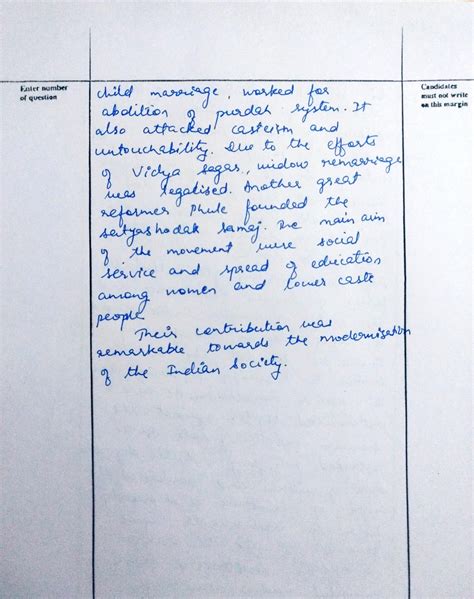 Enter number
of question
Candidates
must not write
on this margin
child marriage, worked for
abolition of purdah system. It
also attacked casteism and
untouchability. Due to the efforts
of Vidya sagar, widow remarriage
was legalised. Another great
reformer Phule founded the
satyashodak samaj. The main aim
of the movement were social
service and spread of education
among women and lower caste
people
Their contribution was
remarkable towards the modernisation
of the Indian Society.